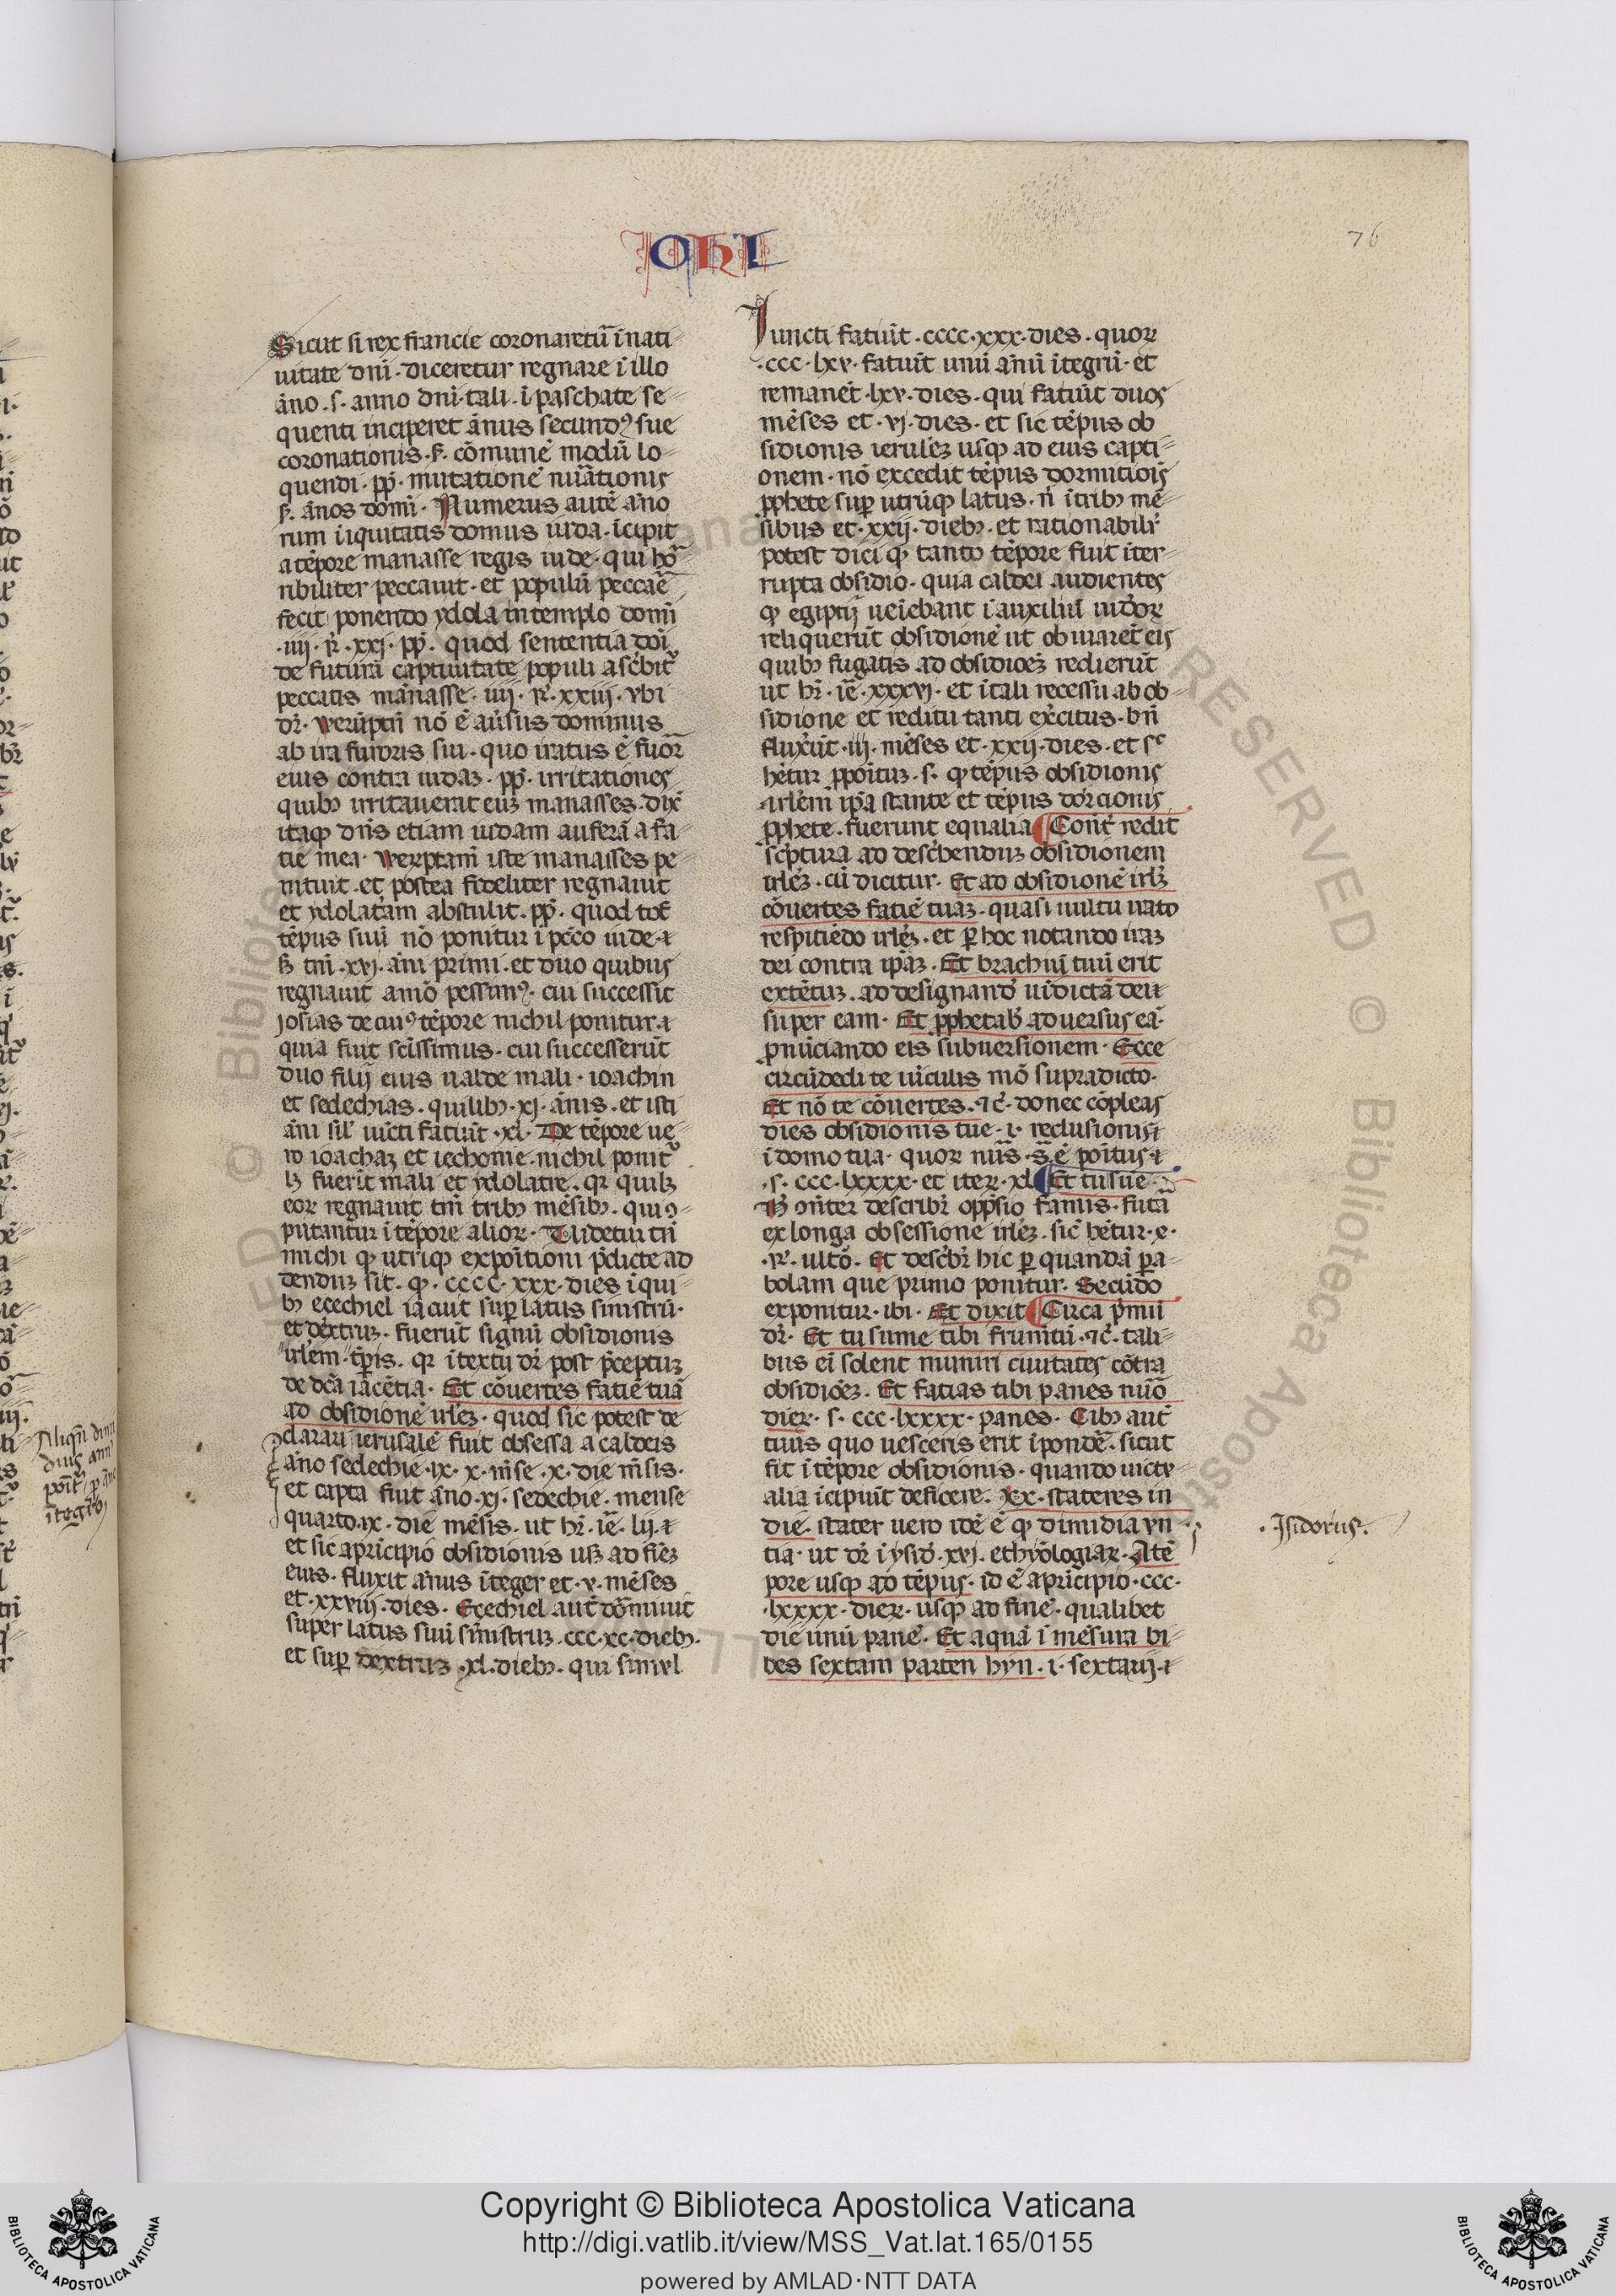 OHI
76
Sicut si rex francie coronaretur̃ ĩ nati⸗
uitate dñi · diceretur regnare ĩ illo
ãno · s · anno dñi · tali · ĩ paschate se⸗
quenti inciperet ãnus secundꝰ sue
coronationis · ẜ · cõmunẽ modũ lo⸗
quendi · pp̃ · mutationẽ nũationis
ẜ · ãnos domĩ · Numerus autẽ ãno
rum iiquitatis domus iuda · ĩcipit
a tẽpore manasse regis iude · qui hor̃
ribiliter peccauit · et populũ peccar̃e
fecit ponendo ydola in templo domĩ
·iiij· R̃ ·xxj· pp̃ · quod sententia doĩ
de futura captiuitate populi asc̃bit᷑
peccatis manasse · iiij · R̃ · xxiij · vbi
dr̃ · verũptñ nõ ẽ auersus dominus
ab ira furoris sui · quo iratus ẽ furor̃
eius contra iudaꝫ · pp̃ · irritationes
quibꝫ irritauerat euꝫ manasses · dix̃
itaqꝫ dñs etiam iudam auferã a fa⸗
cie mea · verptam̃ iste manasses pe⸗
nituit · et postea fideliter regnauit
et ydolatãm abstulit · pp̃ · quod tot̃
tẽpus suũ nõ ponitur ĩ pc̃co iude·
ẜꝫ tm̃ · xvj · ãni primi · et duo quibus
regnauit amõ pessimꝰ · cui successit
Josias de cuiꝰ tẽpore nichil ponitur·
quia fuit sc̃issimus · cui successerũt
duo filij eius ualde mali · ioachin
et sedechias · quilibꝫ · xj · ãnis · et isti
ãni sil̃ iũcti faciũt · xl · De tẽpore ue⸗
ro ioachaꝫ et iechonie · nichil ponit᷑
lꝫ fuerĩt mali et ydolatre · qꝛ quilꝫ
eoꝝ regnauit tm̃ tribꝫ mẽsibꝫ · qui ꝯ⸗
putantur ĩ tẽpore alioꝝ · Uidetur tñ
michi qꝫ utriqꝫ expoĩtioni p̃dicte ad
dendũ sit · qꝫ · cccc · xxx · dies ĩ qui⸗
bꝫ eçechiel iacuit suꝑ latus sinistrũ·
et dextruꝫ · fuerũt signũ obsidionis
irlem · tꝑis · qꝛ ĩ textu dr̃ post p̃ceptuꝫ
de dc̃a iacẽtia · Et cõuertes faciẽ tuã
ad obsidionẽ irleꝫ · quod sic potest de⸗
clarari ierusalẽ fuit obsessa a caldeis
ãno sedechie · ix · x · m̃se · x · die m̃sis ·
et capta fuit ãno · xj · sedechie · mense
quarto · ix · die mẽsis · ut hr̃ · iẽ · lij ·
et sic a prĩcipio obsidionis usqꝫ ad finẽꝫ
eius · fluxit ãnus ĩteger et · v · mẽses
et · xxviij · dies · Eçechiel aut̃ dõmiuit
super latus suũ sinistruꝫ · ccc · xc · diebꝫ ·
et suꝑ dextruꝫ · xl · diebꝫ · qui simvl
Iuncti faciũt · cccc · xxx · dies · quoꝝ
·ccc · lxv · faciũt unũ ãnũ ĩtegrũ · et
remanẽt · lxv · dies · qui faciũt duos
mẽses et · vj · dies · et sic tẽpus ob
sidionis ierlꝫ usqꝫ ad eius capti⸗
onem · nõ excedit tẽpus dormitiõis
ꝓphete suꝑ utrũqꝫ latus · nͥ ĩ tribꝫ mẽ⸗
sibus et · xxij · diebꝫ · et rationabilr̃
potest dici qꝫ tanto tẽpore fuit ĩter⸗
rupta obsidio · quia caldei audientes
qꝫ egiptij ueiebant ĩ auxiliũ iudeoꝝ
reliquerũt obsidionẽ ut obuiarẽt eis
quibꝫ fugatis ad obsidioeꝫ redierũt
ut hr̃ · iẽ · xxxvj · et ĩ tali recessu ab ob⸗
sidione et reditu tanti exc̃itus · bñ
fluxerũt · iij · mẽses et · xxij · dies · et sͨ
hẽtur ꝓpõituꝫ · s · qꝫ tẽpus obsidionis
irlem ipã stante et tẽpus dorc̃ionis
ꝓphete · fuerunt equalia ¶ Conr̃ redit
sc̃ptura ad desc̃bendũ obsidionem
irleꝫ · cũ dicitur · Et ad obsidionẽ irlꝫ
cõuertes faciẽ tuaꝫ · quasi uultu irato
respitiẽdo irleꝫ · et ꝑ hoc notando iraꝫ
dei contra ipaꝫ · Et brachiũ tuũ erit
extẽtuꝫ · ad designand̃ uĩdictã dei
super eam · Et ꝓphetab̃ aduersus eã·
ꝓnũciando eis subuersionem · Ecce
circũdedi te uĩculis mõ supradicto·
Et nõ te cõuertes · ⁊c̃ · donec cõpleas
dies obsidionis tue · i · reclusionis
ĩ domo tua · quoꝝ nũs · s̃ ẽ poĩtus
·s· ccc · lxxxx · et iteꝝ · xl ¶ Et tu sue·
Hͦ ꝯñter describr̃ opp̃sio famis · futã
ex longa obsessione irleꝫ · sic̃ hẽtur · e ·
·R̃ · ultõ · Et desc̃br̃ hic ꝑ quandã ꝑa⸗
bolam que primo ponitur · Secũdo
exponitur · ibi · Et dixit ¶ Circa p̃mũ
dr̃ · Et tu sume tibi frumtũ · ⁊c̃ · tali⸗
bus ei solent muniri ciuitates cõtra
obsidioeꝫ · Et facias tibi panes nũo
dieꝝ · s · ccc · lxxxx · panes · Cibꝫ aut̃
tuus quo uesceris erit ĩ pondẽ · sicut
fit ĩ tẽpore obsidionis · quando uictv⸗
alia ĩcipiũt deficere · xx · stateres in
die · stater uero idẽ ẽ qꝫ dimidia vn⸗
tia · ut dr̃ ĩ ysid̃ · xvj · ethyologiaꝝ · A tẽ
pore usqꝫ ad tẽpus · id ẽ a prĩcipio · ccc ·
·lxxxx · dieꝝ · usqꝫ ad finẽ · qualibet
die unũ panẽ · Et aquã ĩ mẽsura bi⸗
bes sextam parten hyn · i · sextarij ·
·Isidorus·
Copyright © Biblioteca Apostolica Vaticana
http://digi.vatlib.it/view/MSS_Vat.lat.165/0155
powered by AMLAD·NTT DATA
BIBLIOTECA APOSTOLICA VATICANA
BIBLIOTECA APOSTOLICA VATICANA